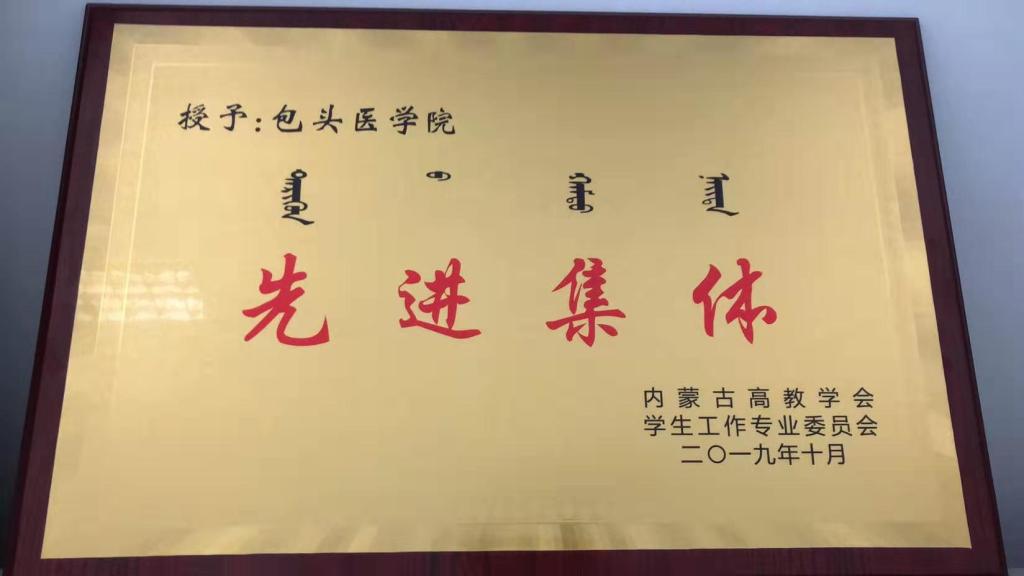 授予:包头医学院
先进集体
内蒙古高教学会
学生工作专业委员会
二〇一九年十月